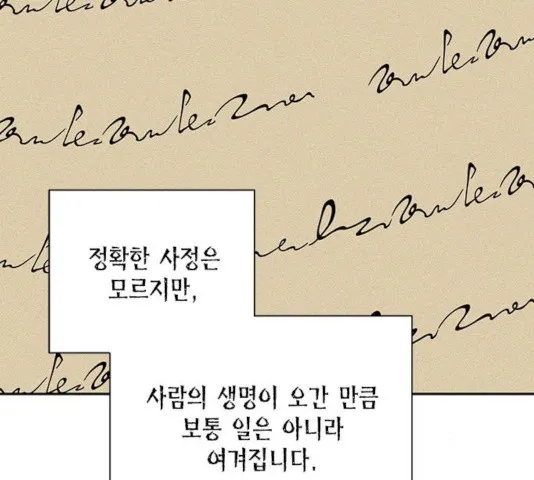 정확한 사정은
모르지만,
사람의 생명이 오간 만큼
보통 일은 아니라
여겨집니다.